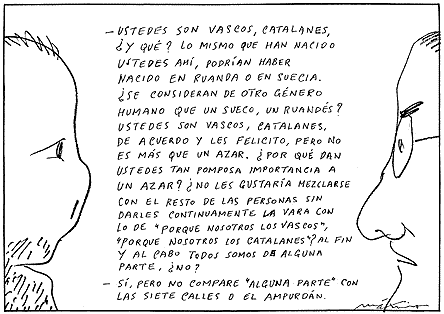 – USTEDES SON VASCOS, CATALANES,
¿Y QUÉ? LO MISMO QUE HAN NACIDO
USTEDES AHÍ, PODRÍAN HABER
NACIDO EN RUANDA O EN SUECIA.
¿SE CONSIDERAN DE OTRO GÉNERO
HUMANO QUE UN SUECO, UN RUANDÉS?
USTEDES SON VASCOS, CATALANES,
DE ACUERDO Y LES FELICITO, PERO NO
ES MÁS QUE UN AZAR. ¿POR QUÉ DAN
USTEDES TAN POMPOSA IMPORTANCIA A
UN AZAR? ¿NO LES GUSTARÍA MEZCLARSE
CON EL RESTO DE LAS PERSONAS SIN
DARLES CONTINUAMENTE LA VARA CON
LO DE "PORQUE NOSOTROS LOS VASCOS",
"PORQUE NOSOTROS LOS CATALANES"? AL FIN
Y AL CABO TODOS SOMOS DE ALGUNA
PARTE, ¿NO?
– SÍ, PERO NO COMPARE "ALGUNA PARTE" CON
LAS SIETE CALLES O EL AMPURDÁN.
máximo